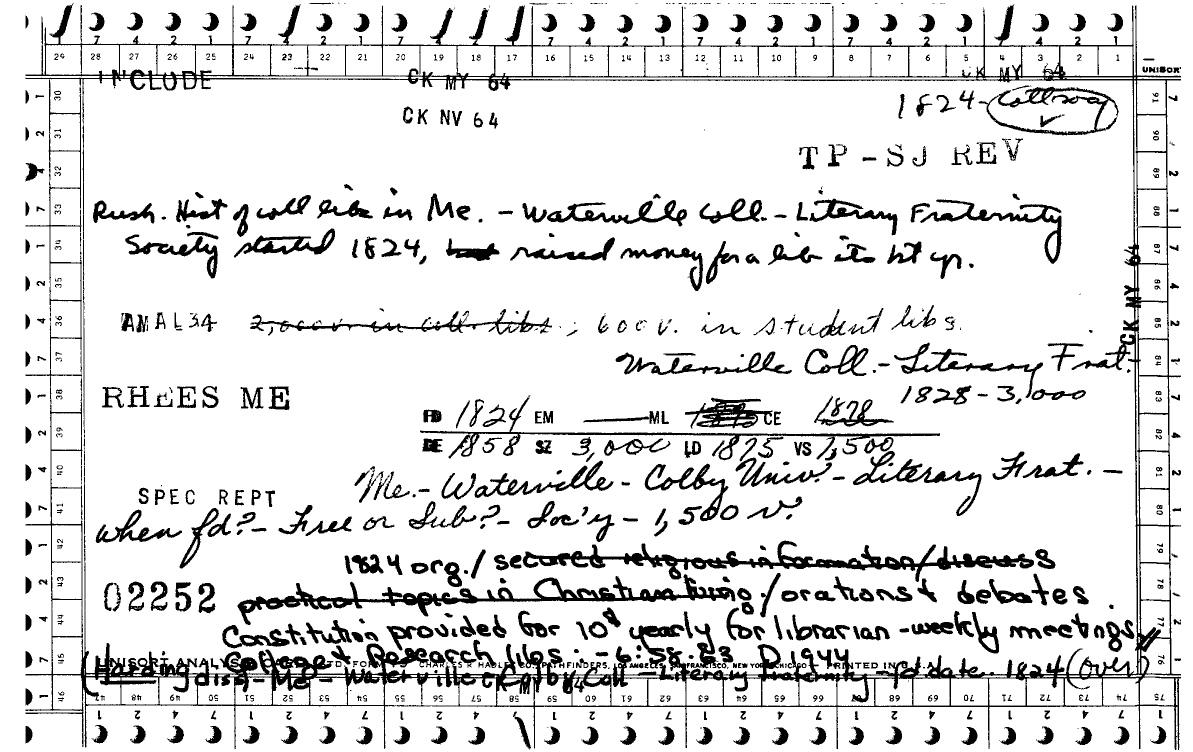 7 4 2 1 7 4 2 1 7 4 2 1 7 4 2 1 7 4 2 1 7 4 2 1 7 4 2 1
29 28 27 26 25 24 23 22 21 20 19 18 17 16 15 14 13 12 11 10 9 8 7 6 5 4 3 2 1
UNISORT
INCLUDE CK MY 64 CK MY 64
1824-
CK NV 64
TP-SJ REV
Rush. Hist of coll libs in Me. - Waterville Coll. - Literary Fraternity
Society started 1824, raised money for a lib its bt up.
AMAL34 2,000 v. in coll. libs; 600 v. in student libs.
Waterville Coll. - Literary Frat.
1828-3,000
RHEES ME
FD 1824 EM — ML CE 1878
DE 1858 SZ 3,000 LD 1875 VS 1,500
SPEC REPT Me. - Waterville - Colby Univ. - Literary Frat. -
when fd? - Free or Sub? - Soc'y - 1,500 v.
1824 org./ secured religious information/discuss
02252 practical topics in Christian living/orations & debates.
Constitution provided for 10$ yearly for librarian - weekly meetings
College & Research libs. - 6:58-83 D 1944
UNISORT ANALYSIS CHARLES R. HADLEY PATHFINDERS, LOS ANGELES, SAN FRANCISCO, NEW YORK, CHICAGO PRINTED IN U.S.A.
(Harding diss - Me - Waterville Colby Coll - Literary fraternity - fd date. 1824 (over)
CK MY 64
CK MY 64
30 31 32 33 34 35 36 37 38 39 40 41 42 43 44 45 46
91 90 89 88 87 86 85 84 83 82 81 80 79 78 77 76 75
47 48 49 50 51 52 53 54 55 56 57 58 59 60 61 62 63 64 65 66 67 68 69 70 71 72 73 74